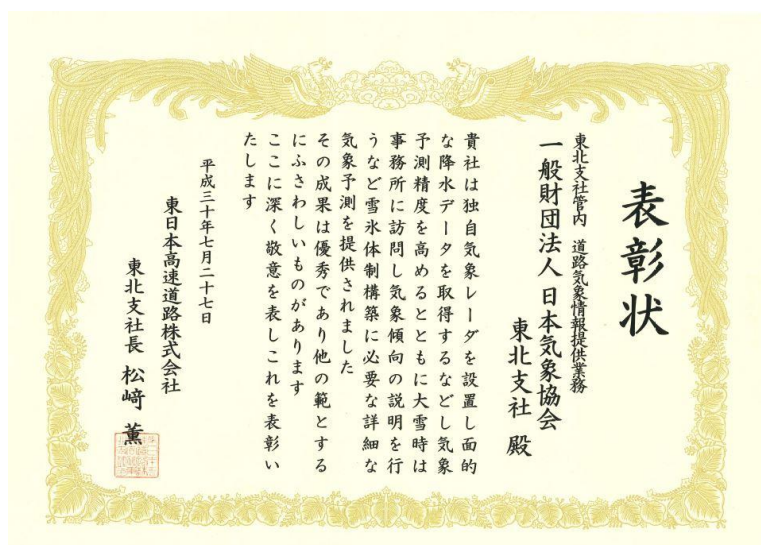 表彰状
東北支社管内 道路気象情報提供業務
一般財団法人 日本気象協会
東北支社 殿
貴社は独自気象レーダを設置し面的
な降水データを取得するなどし気象
予測精度を高めるとともに大雪時は
事務所に訪問し気象傾向の説明を行
うなど雪氷体制構築に必要な詳細な
気象予測を提供されました
その成果は優秀であり他の範とする
にふさわしいものがあります
ここに深く敬意を表しこれを表彰い
たします
平成三十年七月二十七日
東日本高速道路株式会社
東北支社長 松﨑 薫